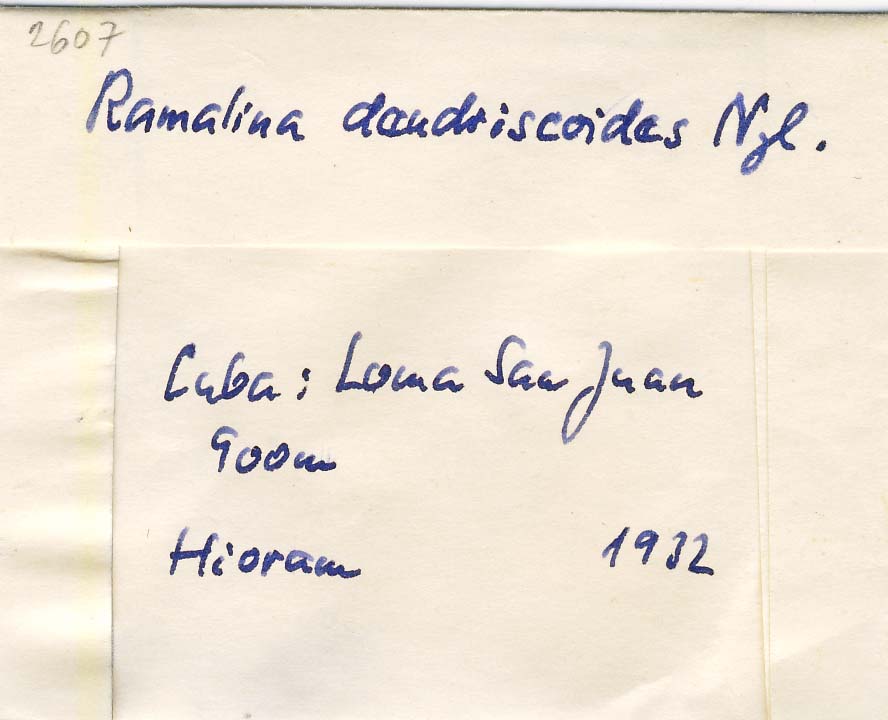 2607
Ramalina dendriscoides Nyl.
Cuba: Loma San Juan
900m
Hioram 1932